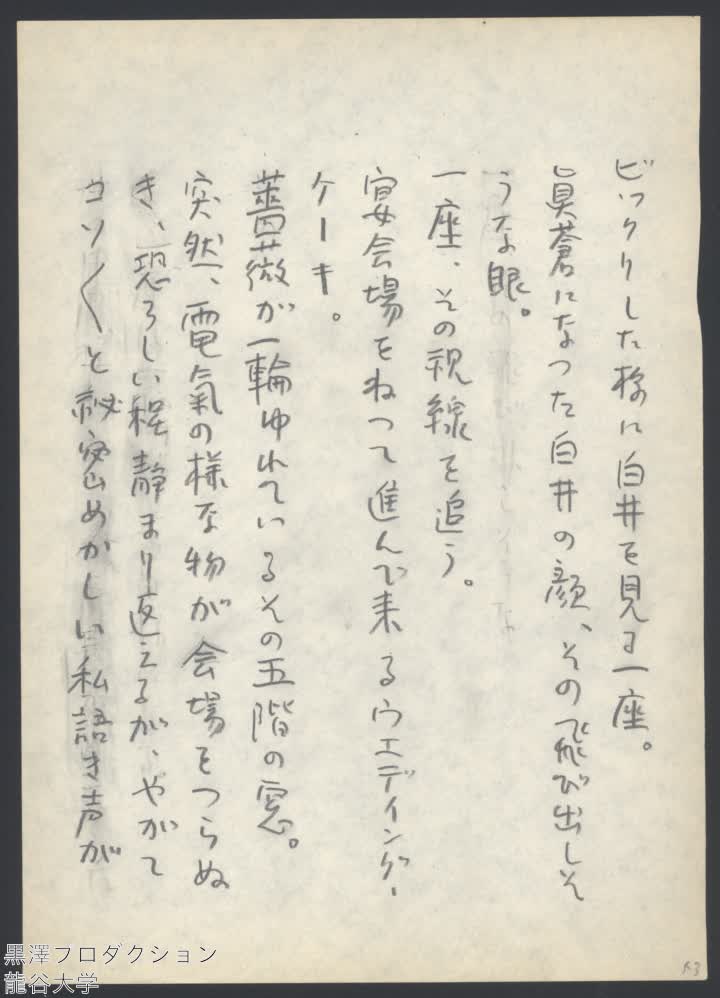 ビックリした様に白井を見る一座。
眞蒼になつた白井の顔、その飛び出しそ
うな眼。
一座、その視線を追う。
宴会場をねつて進んで来るウエディング・
ケーキ。
薔薇が一輪ゆれているその五階の窓。
突然、電氣の様な物が会場をつらぬ
き、恐ろしい程静まり返えるが、やがて
コソ〱と秘密めかしい私語き声が
黒澤プロダクション
龍谷大学